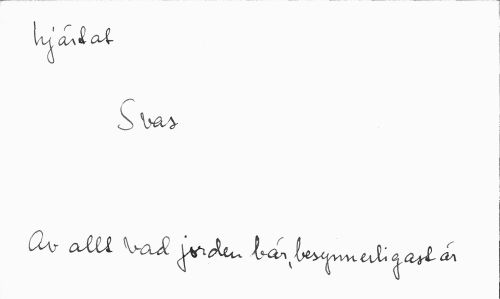 hjärtat
Svar
Av allt vad jorden bär, besynnerligast är